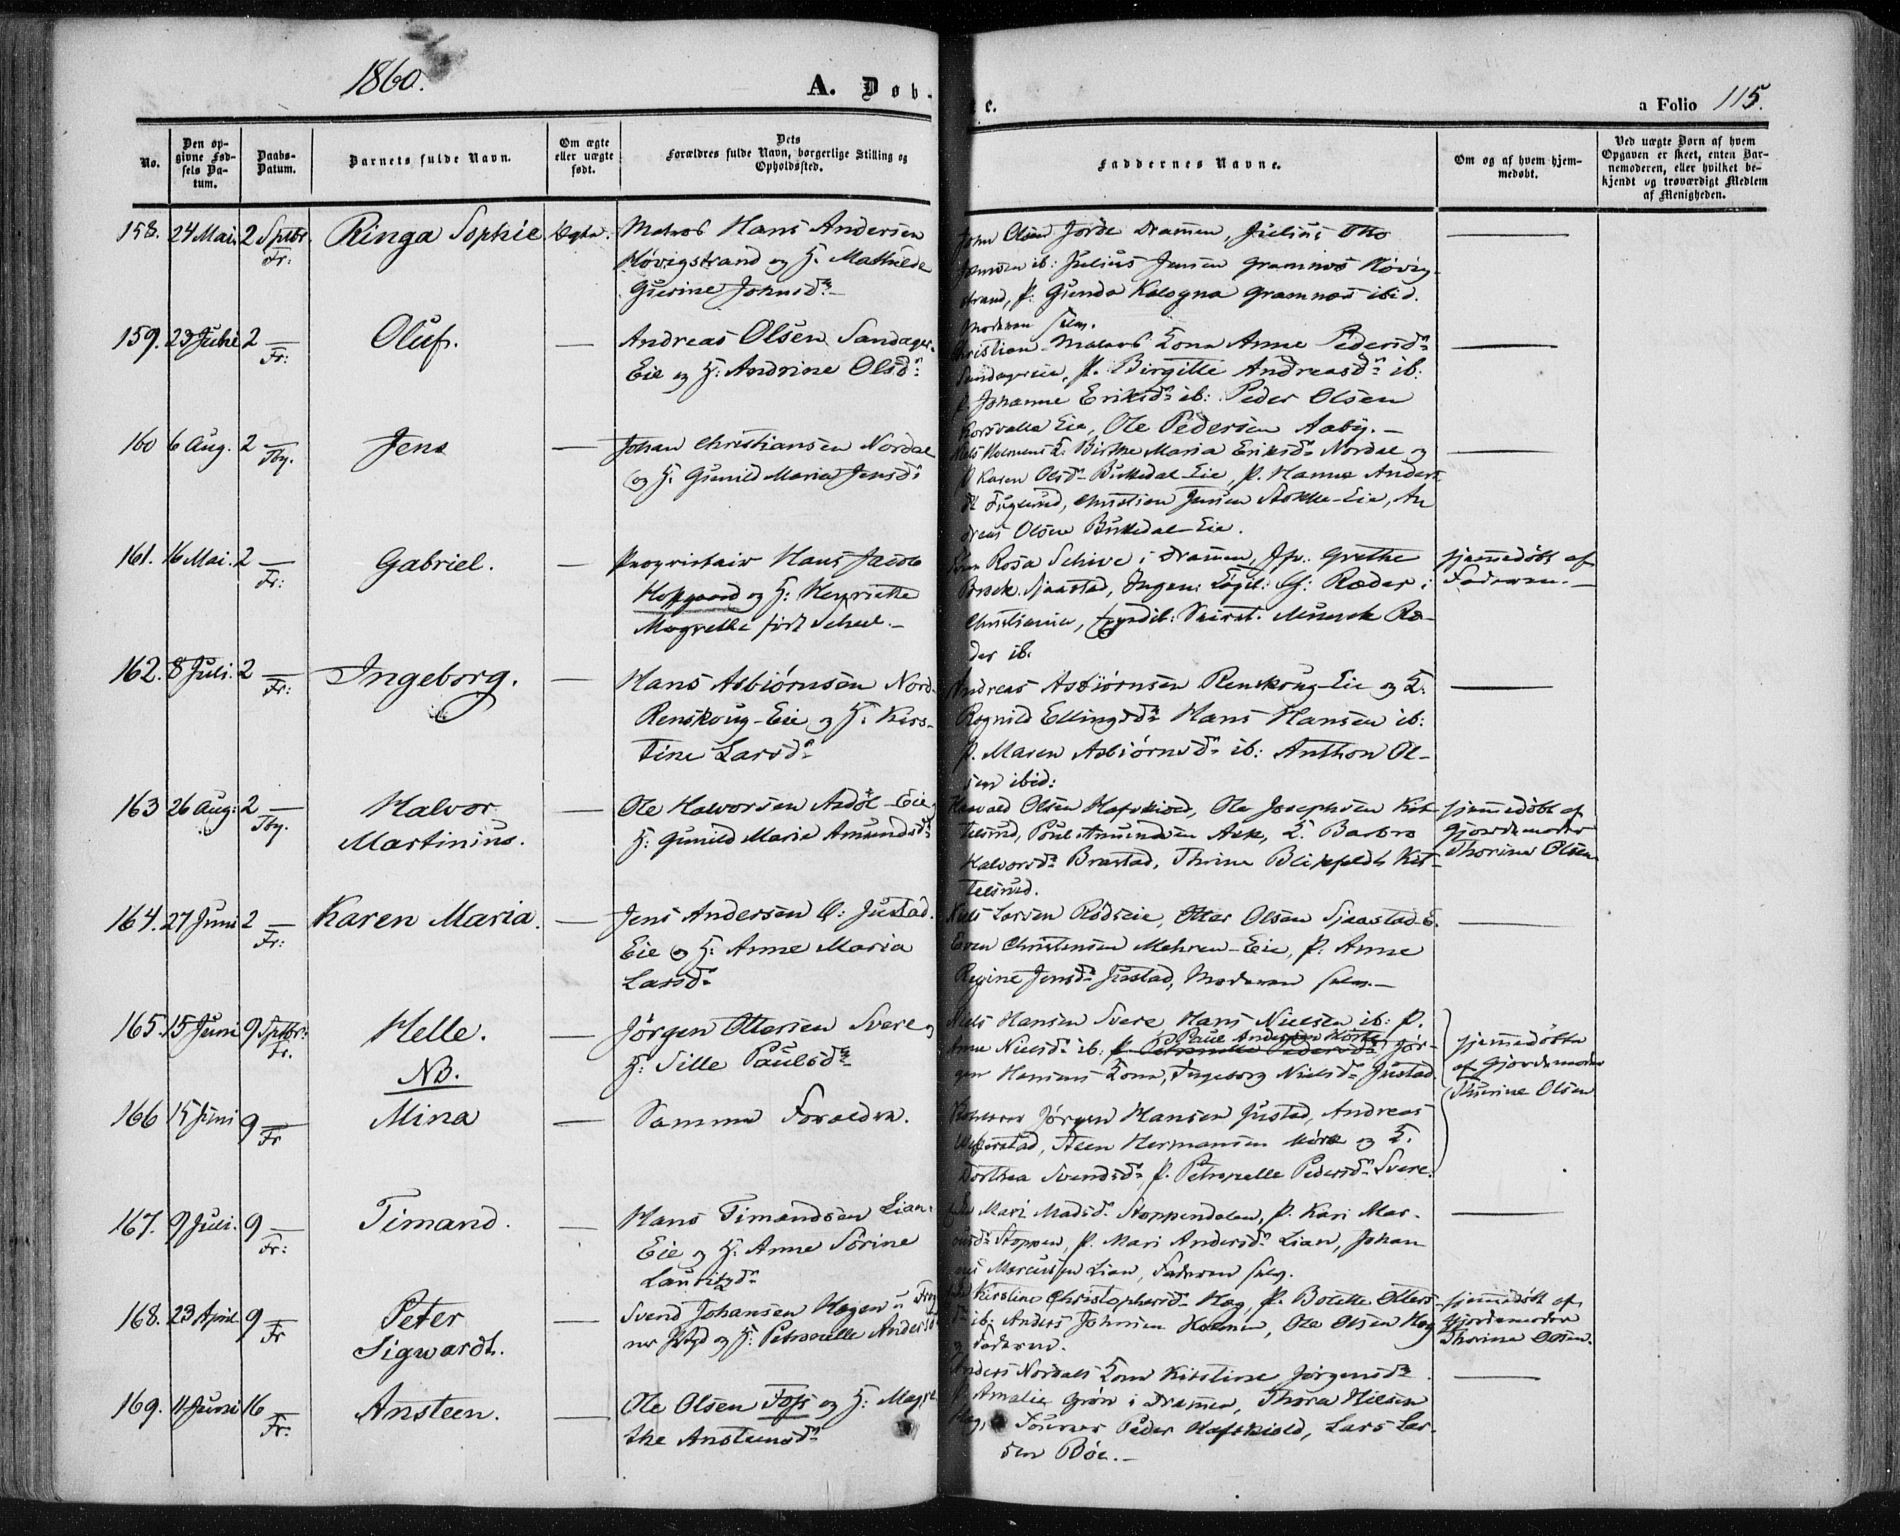 1860.
A. Døb-
e.
a Folio 115.
No.
Den op-
givne Fød-
sels Da-
tum.
Daabs-
Datum.
Barnets fulde Navn.
Om ægte
eller uægte
født.
Dets
Forældres fulde Navn, borgerlige Stilling og
Opholdssted.
Faddernes Navne.
Om og af hvem hjem-
medøbt.
Ved uægte Børn af hvem
Opgaven er skeet, enten Bar-
nemoderen, eller hvilket be-
kjendt og troværdigt Medlem
af Menigheden.
158. 24 Mai. 2 Sptbr. Fr: Ringa Sophie Ægte. Matros Hans Andersen
Høvigstrand og H. Mathilde
Gurine Johnsd.
John Olsen Jorde Dramen, Julius Tho
ib: Julius Jensen Gramnæs Høvig-
strand, P. Gunda Kalogna Gramnæs ibid.
Moderen selv.
159. 23 Juli 2 — Fr: Oluf. — Andreas Olsen Sandager-
Eie og H. Andrine Olsd:
Christian Matros Kona Anne Pedersd.
Sandagereie, P. Birgitte Andreasd. ib:
P. Johanne Eriksd. ib: Peder Olsen
Korsvalla Eie, Ole Pedersen Aaby.
160 6 Aug. 2 — Tby. Jens — Johan Christiansen Nordal
og H. Gunild Maria Jensd:
Niels Holmens K. Birthe Maria Eriksd. Nordal og
P. Karen Olsd. Buttedal-Eie, P. Hanna Anders
d. Fuglerud, Christian Jensen Stokke-Eie, An
dreas Olsen Buttedal-Eie.
161. 16 Mai. 2 — Fr: Gabriel. — Proprietair Hans Jacob
Hofgaard og H. Henriette
Magrethe født Scheel.
Rosa Schive i Dramen, Jfr. Grethe
Brock Sjaastad, Ingen: Ræder i
Christiania, Munch Ræ-
der ib.
hjemmedøbt af
Faderen.
162. 8 Juli. 2 — Fr: Ingeborg. — Hans Asbiørnsen Nord-
Renskoug-Eie og H. Kirs-
tine Larsd.
Andreas Asbiørnsen Renskoug-Eie og K.
Ragnild Ellingsd. Hans Hansen ib:
P. Maren Asbiørnsd. ib: Anthon Ol-
sen ibid:
163 26 Aug: 2 — Tby. Halvor
Martinius. — Ole Halvorsen Asdøl-Eie
H. Gunild Maria Amundsd.
Harald Olsen Hafskiold, Ole Josephsen Kit-
telsrud, Poul Amundsen Ask, K. Barbro
Halvorsd. Brastad, Thrine Blixfeldt Kit-
telsrud.
hjemmedøbt af
Gjordemoder
Thorine Olsen
164. 27 Juni 2 — Fr: Karen Maria. — Jens Andersen Ø: Justad.
Eie og H. Anne Maria
Larsd.
Niels Larsen Rødseie, Otter Olsen Sjaastad-E.
Even Christensen Mehren-Eie, P. Anne
Regine Jensd. Justad, Moderen selv.
165. 15 Juni 9 Sptbr: Fr. Helle.
NB. — Jørgen Ottersen Svere
H. Sille Paulsd.
Niels Hansen Svere, Hans Nielsen ib: P.
Paul Andersen
Anne Nielsd. ib: P. Petronelle Pedersd. Jør-
gen Hansens Kona, Ingeborg Nielsd. Justad.
hjemmedøbte
af Gjordemoder
Thorine Olsen
166 15 Juni 9 — Fr Mina — Samme Foræeldre.
Jørgen Hansen Justad, Andreas
Steen Hermansen og K.
Dorthea Svendsd. P. Petronelle Pedersd. Svere.
167. 9 Juli. 9 — Fr: Timand. — Hans Timandsen Lian-
Eie og H. Anne Sørine
Lauritzd.
Mari Madsd. Stoppendalen, P. Kari Mar-
cusd. Stoppen, P. Mari Andersd. Lian, Johan
nes Marcussen Lian, Faderen selv.
168. 23 April 9 — Fr Peter
Sigwardt. — Svend Johansen Hagen u. Frog
ner Præstgd og H. Petronelle Andersd
Kirstine Christophersd. Hag, P. Bolette Otters
d. ib: Anders Johnsen Holmen, Ole Olsen Hag
og Faderen.
hjemmedøbt af
Gjordemoder
Thorine Olsen.
169. 11 Juni 16 — Fr. Ansteen. — Ole Olsen Foss og H. Magre
the Ansteensd.
Anders Nordals Kona Kirstine Jørgensd.
P. Amalie Grøn i Dramen, Thora Nielsen
Hag, Peder Hafskiold, Lars Lar-
sen Bøe.